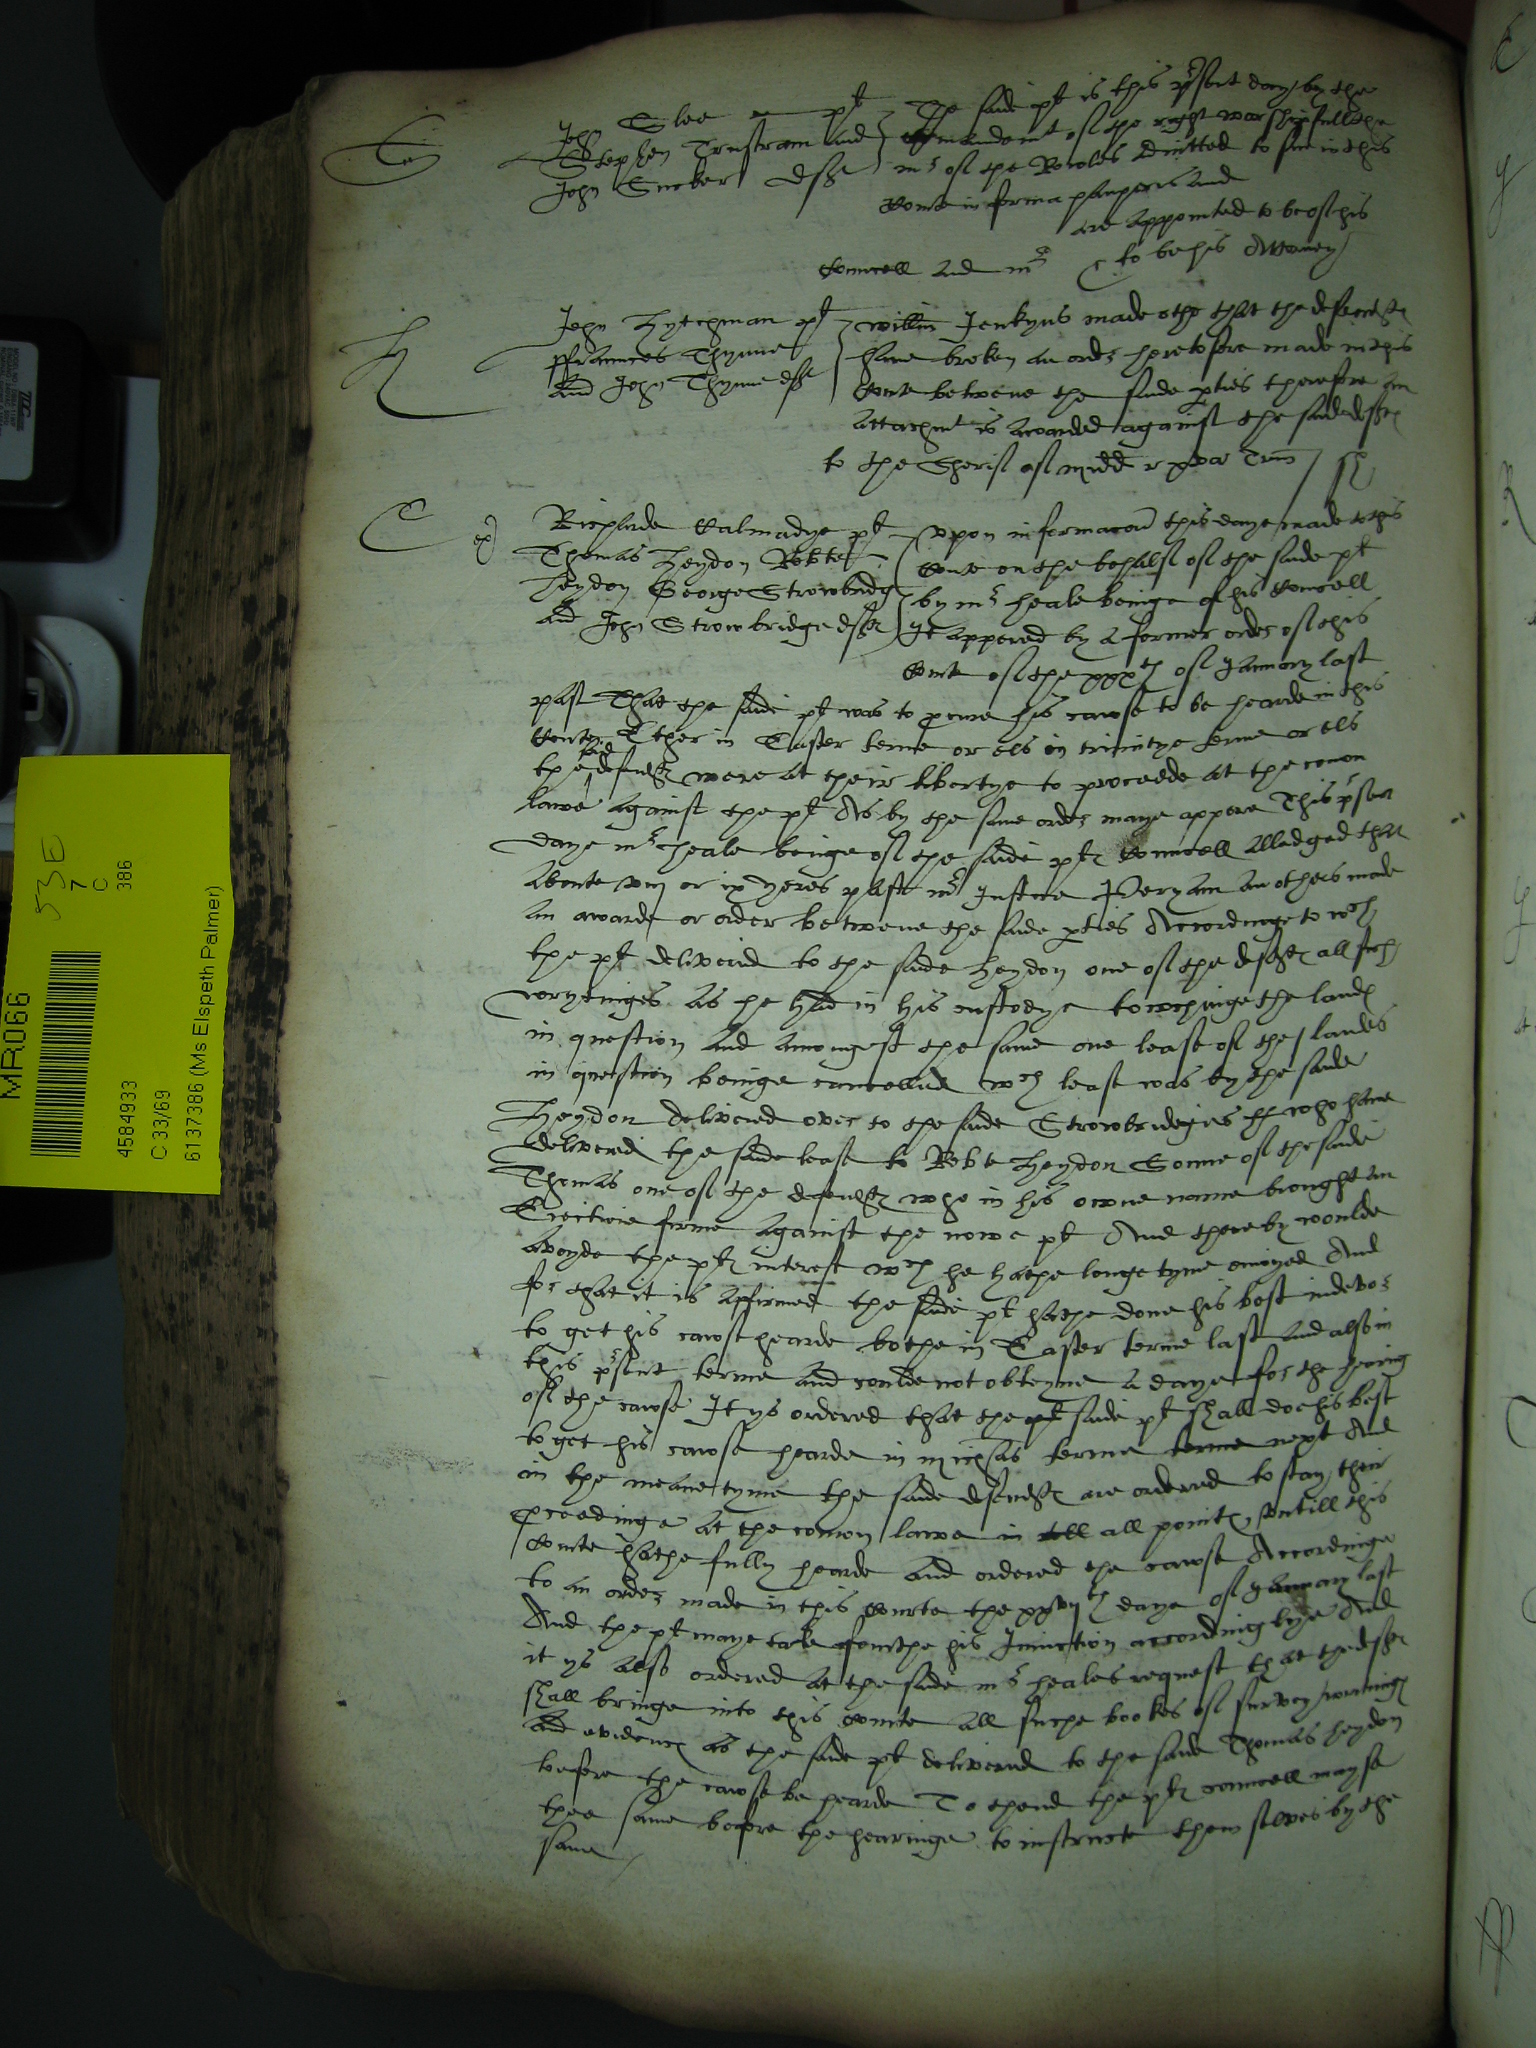 John Slee pt
Stephen Trustram and
John Sucker defts
The saide pt is this pSent day by the
comandemt of the right worshipfull the
mr of the Rowles admitted to sue in this
Corte in forma pauperis and
are appointed to be of his
councell and mr to be his Attorney
H
John Hytchman pt
ffraunces Thynne
and John Thynne defts
willm Jenkyns made othe that the defendts
have broken an order heretofore made in this
Corte betwene the saide pties therefore an
attachmt is awarded against the saide defts
to the Sherif of Midd
C
Richarde Calmadye pt
Thomas Heydon Robte
Heydon George Strowbridg
and John Strowbridge defts
Vpon informacon this daye made to this
Corte on the behalf of the saide pt
by mr Heale beinge of his Councell
It appered by a former order of this
Corte of the xxxth of January last
past That the saide pt was to pcure his cawse to be hearde in this
Corte Ether in Easter terme or els in trinitye terme or els
the said defendts were at their libertye to proceede at the comon
lawe against the pt As by the same order maye appere This pSent
daye mr heale beinge of the saide pts Councell alledged that
aboute viij or ix yeres past mr Justice Peryam an others made
an awarde or order betwene the saide pties Accordinge to wch
the pt delivered to the saide Heydon one of the defts all such
wrytinges as he had in his custodye towchinge the lands
in question and amongest the same one lease of the landes
in question beinge cancelled wch lease was by the saide
Heydon delivered over to the saide Strowbridgies who have
delivered the saide lease to Robte Heydon Sonne of the saide
Thomas one of the defendts who in his owne name brought an
Eiectione firme against the nowe pt And thereby woulde
avoyde the pts interest wch he hathe longe tyme enioyed And
for that it is affirmed the saide pt hathe done his best indevor
to get his cawse hearde bothe in Easter terme last and also in
this pSent terme and coulde not obteyne a daye for the hering
of the cawse It ys ordered that the pt saide pt shall doe his best
to get his cawse hearde in Michas terme terme next And
in the meane tyme the saide defendts are ordered to stay their
pceedinge at the comon lawe in all points, vntill this
Courte hathe fully hearde and ordered the cawse Accordinge
to an order made in this Courte the xxvijth daye of January last
And the pt maye take fourthe his Iniunction accordinglye And
it ys also ordered at the saide mr heales request that the defts
shall bringe into this Courte all suche bookes of survey wrings
and evidencs as the saide pt delivered to the saide Thomas Heydon
before the cawse be hearde To thend the pts councell may se
thee same before the hearinge to instructe them selves by the
same
MR066
53E
7
C
386
4584933
C 33/69
6137386 (Ms Elspeth Palmer)